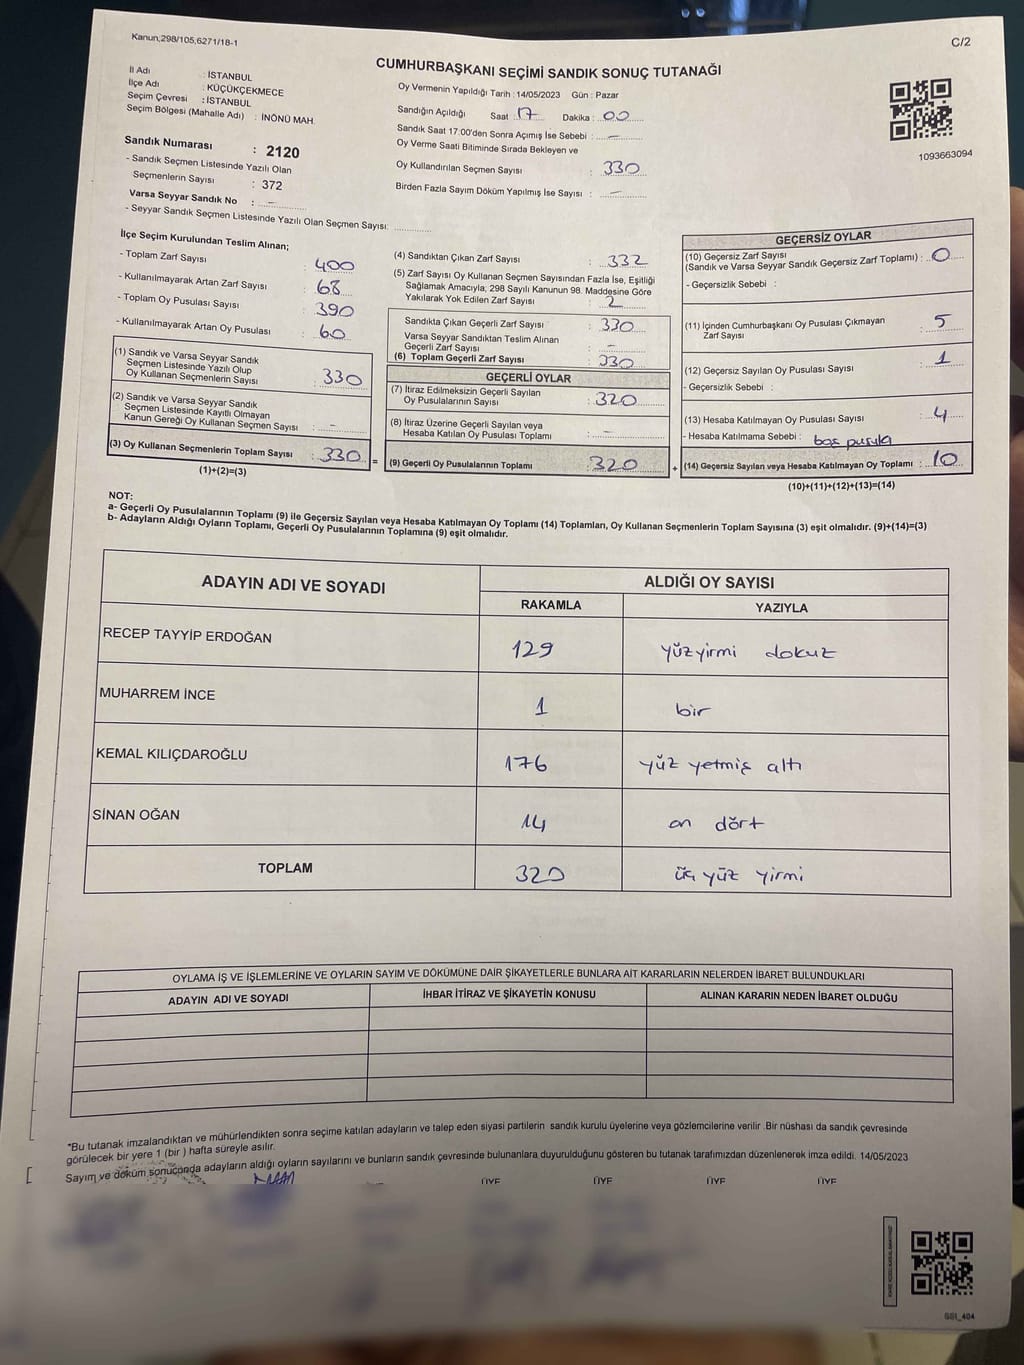 Kanun;298/105,6271/18-1
C/2
CUMHURBAŞKANI SEÇİMİ SANDIK SONUÇ TUTANAĞI
İl Adı : İSTANBUL
İlçe Adı : KÜÇÜKÇEKMECE
Seçim Çevresi : İSTANBUL
Seçim Bölgesi (Mahalle Adı) : İNÖNÜ MAH.
Sandık Numarası : 2120
- Sandık Seçmen Listesinde Yazılı Olan
Seçmenlerin Sayısı : 372
Varsa Seyyar Sandık No : -
- Seyyar Sandık Seçmen Listesinde Yazılı Olan Seçmen Sayısı:
Oy Vermenin Yapıldığı Tarih : 14/05/2023 Gün : Pazar
Sandığın Açıldığı Saat : 17 Dakika : 00
Sandık Saat 17:00'den Sonra Açımış İse Sebebi : -
Oy Verme Saati Bitiminde Sırada Bekleyen ve
Oy Kullandırılan Seçmen Sayısı : 330
Birden Fazla Sayım Döküm Yapılmış İse Sayısı : -
1093663094
İlçe Seçim Kurulundan Teslim Alınan;
- Toplam Zarf Sayısı : 400
- Kullanılmayarak Artan Zarf Sayısı : 68
- Toplam Oy Pusulası Sayısı : 390
- Kullanılmayarak Artan Oy Pusulası : 60
(1) Sandık ve Varsa Seyyar Sandık
Seçmen Listesinde Yazılı Olup
Oy Kullanan Seçmenlerin Sayısı : 330
(2) Sandık ve Varsa Seyyar Sandık
Seçmen Listesinde Kayıtlı Olmayan
Kanun Gereği Oy Kullanan Seçmen Sayısı : -
(3) Oy Kullanan Seçmenlerin Toplam Sayısı : 330 =
(1)+(2)=(3)
(4) Sandıktan Çıkan Zarf Sayısı : 332
(5) Zarf Sayısı Oy Kullanan Seçmen Sayısından Fazla İse, Eşitliği
Sağlamak Amacıyla; 298 Sayılı Kanunun 98. Maddesine Göre
Yakılarak Yok Edilen Zarf Sayısı : 2
Sandıkta Çıkan Geçerli Zarf Sayısı : 330
Varsa Seyyar Sandıktan Teslim Alınan
Geçerli Zarf Sayısı : -
(6) Toplam Geçerli Zarf Sayısı : 330
GEÇERLİ OYLAR
(7) İtiraz Edilmeksizin Geçerli Sayılan
Oy Pusulalarının Sayısı : 320
(8) İtiraz Üzerine Geçerli Sayılan veya
Hesaba Katılan Oy Pusulası Toplamı : -
(9) Geçerli Oy Pusulalarının Toplamı : 320 +
GEÇERSİZ OYLAR
(10) Geçersiz Zarf Sayısı
(Sandık ve Varsa Seyyar Sandık Geçersiz Zarf Toplamı) : 0
- Geçersizlik Sebebi :
(11) İçinden Cumhurbaşkanı Oy Pusulası Çıkmayan
Zarf Sayısı : 5
(12) Geçersiz Sayılan Oy Pusulası Sayısı : 1
- Geçersizlik Sebebi :
(13) Hesaba Katılmayan Oy Pusulası Sayısı : 4
- Hesaba Katılmama Sebebi : boş pusula
(14) Geçersiz Sayılan veya Hesaba Katılmayan Oy Toplamı : 10
(10)+(11)+(12)+(13)=(14)
NOT:
a- Geçerli Oy Pusulalarının Toplamı (9) ile Geçersiz Sayılan veya Hesaba Katılmayan Oy Toplamı (14) Toplamları, Oy Kullanan Seçmenlerin Toplam Sayısına (3) eşit olmalıdır. (9)+(14)=(3)
b- Adayların Aldığı Oyların Toplamı, Geçerli Oy Pusulalarının Toplamına (9) eşit olmalıdır.
ADAYIN ADI VE SOYADI ALDIĞI OY SAYISI
RAKAMLA YAZIYLA
RECEP TAYYİP ERDOĞAN 129 yüzyirmi dokuz
MUHARREM İNCE 1 bir
KEMAL KILIÇDAROĞLU 176 yüz yetmiş altı
SİNAN OĞAN 14 on dört
TOPLAM 320 üç yüz yirmi
OYLAMA İŞ VE İŞLEMLERİNE VE OYLARIN SAYIM VE DÖKÜMÜNE DAİR ŞİKAYETLERLE BUNLARA AİT KARARLARIN NELERDEN İBARET BULUNDUKLARI
ADAYIN ADI VE SOYADI İHBAR İTİRAZ VE ŞİKAYETİN KONUSU ALINAN KARARIN NEDEN İBARET OLDUĞU
*Bu tutanak imzalandıktan ve mühürlendikten sonra seçime katılan adayların ve talep eden siyasi partilerin sandık kurulu üyelerine veya gözlemcilerine verilir .Bir nüshası da sandık çevresinde
görülecek bir yere 1 (bir ) hafta süreyle asılır.
Sayım ve döküm sonucunda adayların aldığı oyların sayılarını ve bunların sandık çevresinde bulunanlara duyurulduğunu gösteren bu tutanak tarafımızdan düzenlenerek imza edildi. 14/05/2023
ÜYE ÜYE ÜYE ÜYE